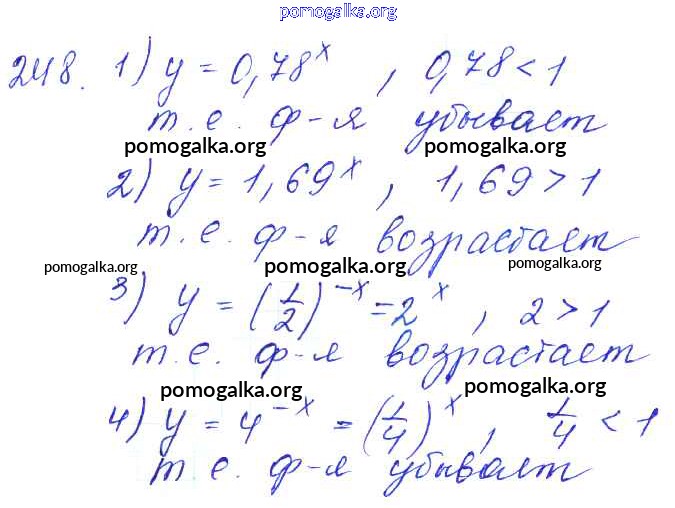 pomogalka.org
248. 1) y = 0,78^x , 0,78 < 1
т.е. ф-я убывает
pomogalka.org pomogalka.org
2) y = 1,69^x , 1,69 > 1
т.е. ф-я возрастает
pomogalka.org pomogalka.org pomogalka.org
3) y = (1/2)^{-x} = 2^x , 2 > 1
т.е. ф-я возрастает
pomogalka.org pomogalka.org
4) y = 4^{-x} = (1/4)^x , 1/4 < 1
т.е. ф-я убывает